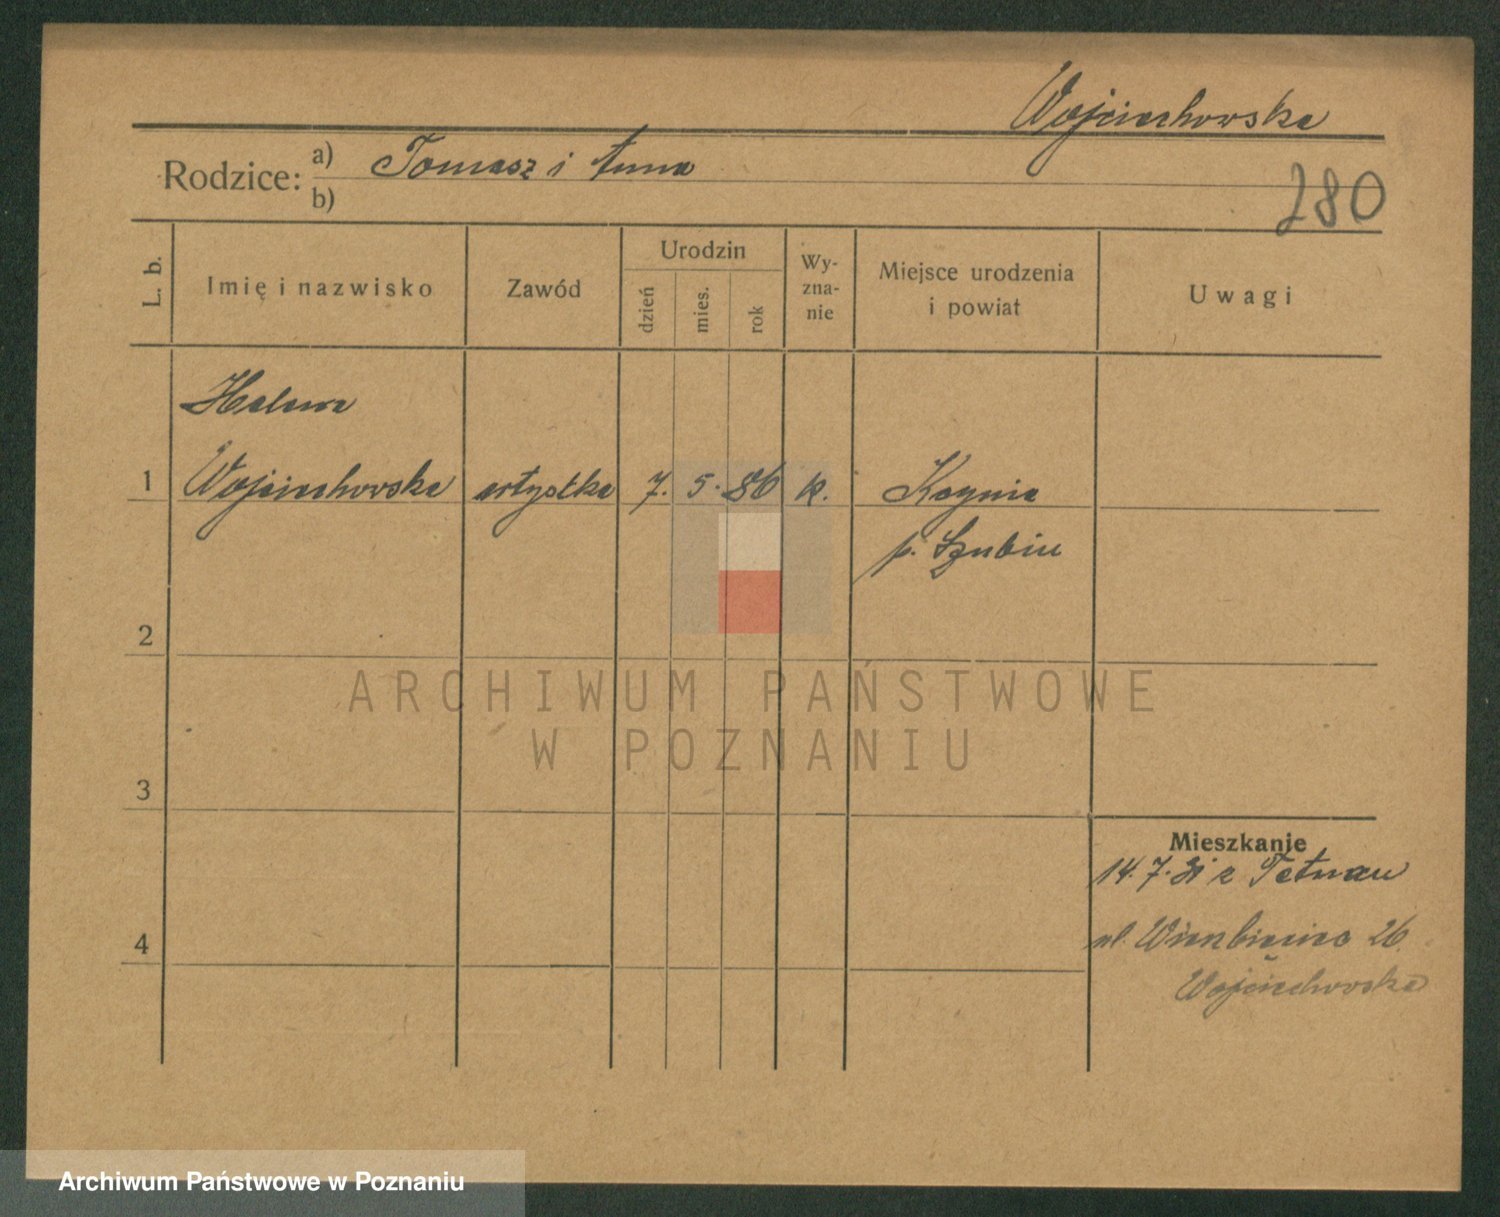 Wojciechowska
Rodzice: a) Tomasz i Anna
b)
280
L. b.
Imię i nazwisko
Zawód
Urodzin
dzień
mies.
rok
Wy-
zna-
nie
Miejsce urodzenia
i powiat
Uwagi
Helena
1 Wojciechowska artystka 7. 5. 86 k. Kcynia
p. Szubin
2
3
4
Mieszkanie
14. 7. 31 z
ul. Wierzbięcice 26
Wojciechowska
ARCHIWUM PAŃSTWOWE
W POZNANIU
Archiwum Państwowe w Poznaniu